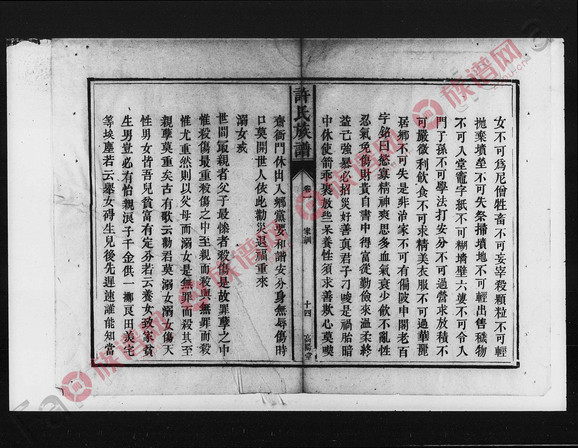 女不可爲尼僧牲畜不可妄宰殺顆粒不可輕
抛棄墳塋不可失祭掃墳地不可輕出售穢物
不可入堂竈字紙不可糊墻壁六婆不可令入
門子孫不可學法打安分不可過營求放積不
可嚴微利飲食不可求精美衣服不可過華麗
居鄉不可失是非治家不可有傷陂申閒老百
字銘曰慾寡精神爽思多血氣衰少飲不亂性
忍氣免傷財貴自書中得富從勤儉來溫柔終
益己強暴必招災好善眞君子刁唆是禍胎暗
中休使箭乖裏放些呆養性須求善欺心莫喫
齋衙門休出入鄉黨要和諧安分身無辱傷時
口莫開世人依此勸災退福重來
溺女戒
世間最親者父子最慘者殺傷是故罪孽之中
惟殺傷最重殺傷之中至親而殺與無罪而殺
惟尤重然則以父母而溺女是無罪而殺其至
親孽莫重矣古有歌云勸君莫溺女溺女傷天
性男女皆吾兒貧富有定分若云養女致家貧
生男豈必有怡親浪子千金供一擲良田美宅
等埃塵若云舉女碍生兒後先遲速誰能知當
許氏族譜
卷
家訓
十四
高陽堂
族谱网
族谱网
族谱网